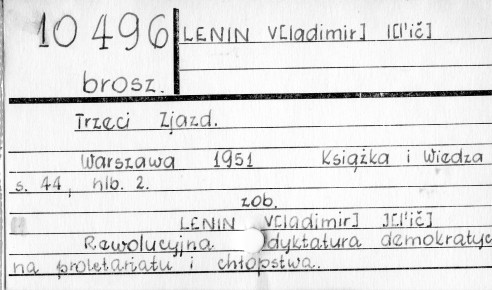 10 496 LENIN V[ladimir] I[l'ič]
brosz.
Trzeci Zjazd.
Warszawa 1951 Książka i Wiedza
s. 44, nlb. 2.
zob.
LENIN V[ladimir] I[l'ič]
Rewolucyjna dyktatura demokratycz
na proletariatu i chłopstwa.